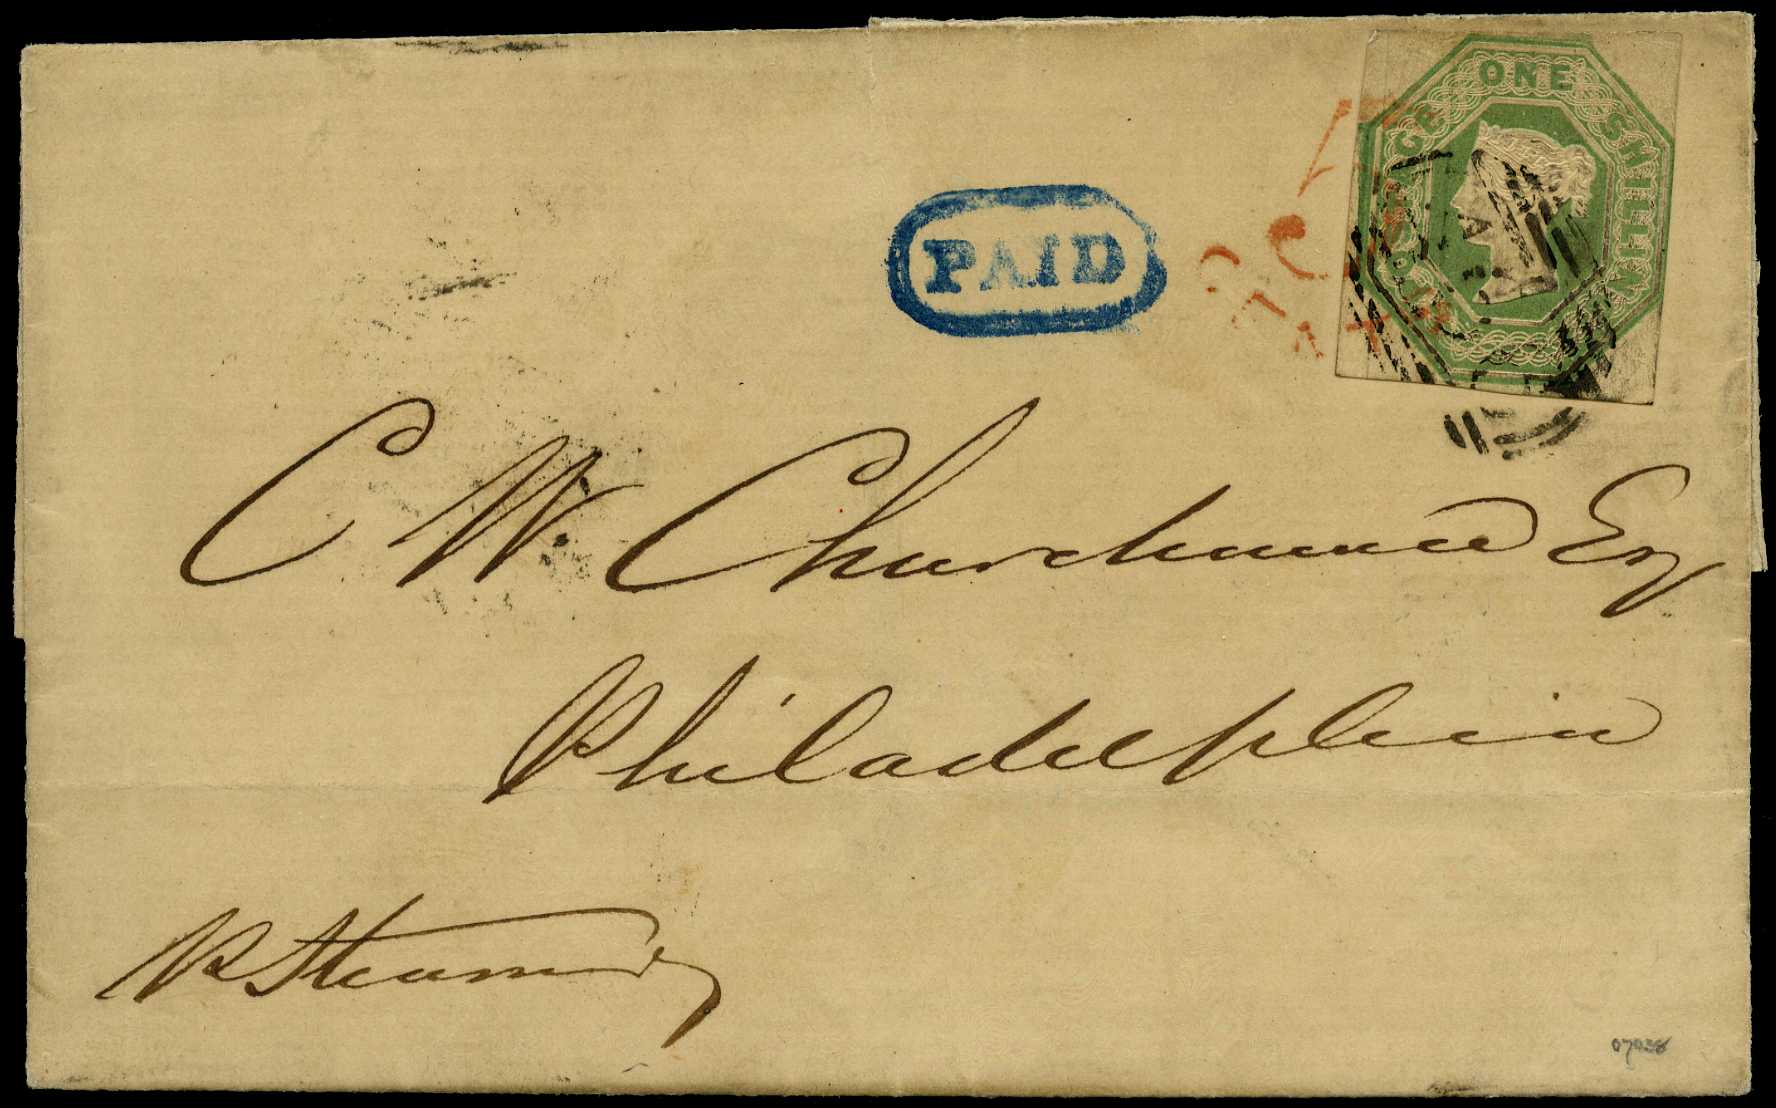 ONE SHILLING
POSTAGE
PAID
C. W. Churchman Esq
Philadelphia
P Steamer
07038